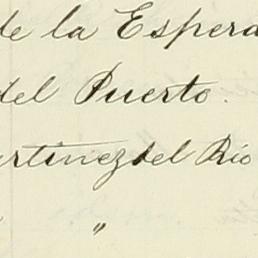 de la Espera
del Puerto.
artinez del Rio
" "